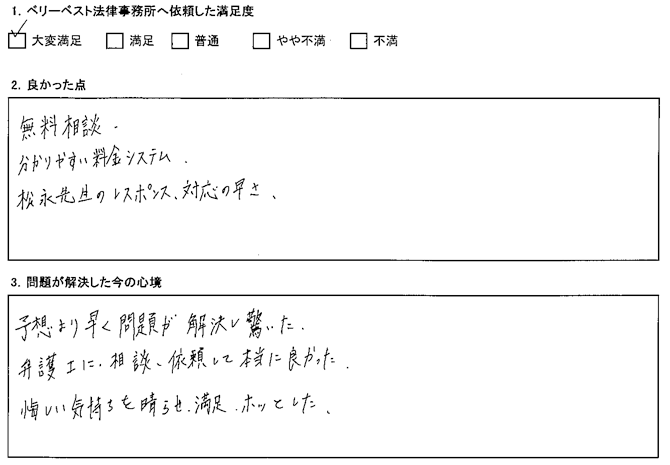 1. ベリーベスト法律事務所へ依頼した満足度
大変満足 満足 普通 やや不満 不満
2. 良かった点
無料相談.
分かりやすい料金システム.
松永先生のレスポンス、対応の早さ、
3. 問題が解決した今の心境
予想より早く問題が解決し驚いた.
弁護士に、相談、依頼して本当に良かった.
悔しい気持ちを晴らせ、満足、ホッとした、